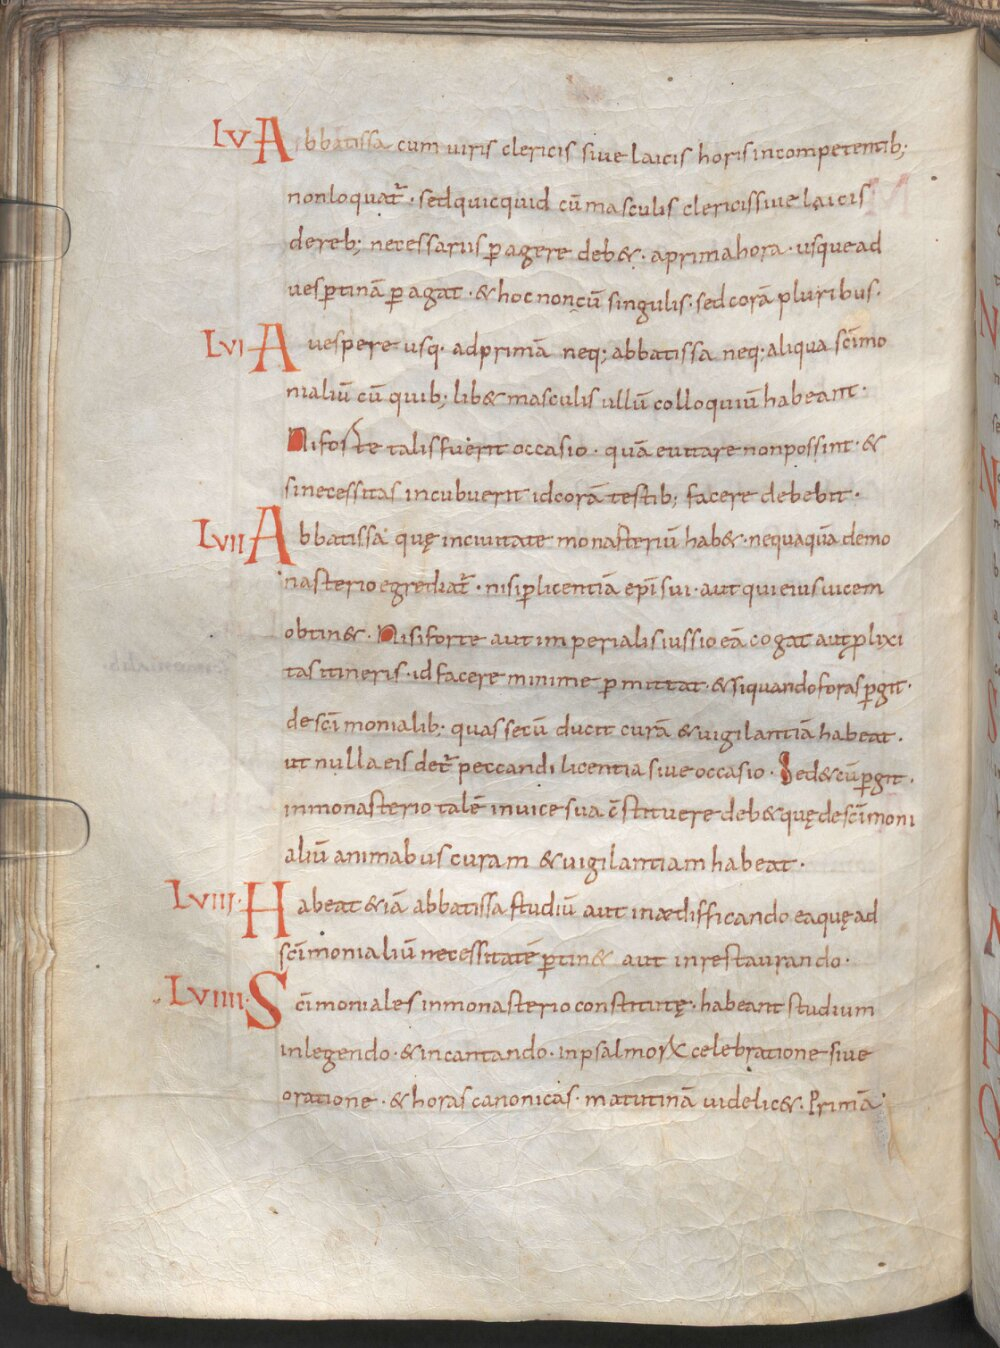 LV Abbatissa cum viris clericis sive laicis horis incompetentib;
nonloquat̃ · sedquicquid cū masculis clericissive laicis
dereb; necessariis ꝑagere deb& · aprimahora · usquead
vesꝑtinā ꝑagat · & hoc noncū singulis · sed corā pluribus ·
LVI A vespere usq· adprimā neq; abbatissa neq; aliqua scīmo
nialiū cū quib; lib& masculis ullū colloquiū habeant ·
Niforte talis fuerit occasio · quā evitare nonpossint · &
sinecessitas incubuerit idcorā testib; facere debebit ·
LVII Abbatissa quę incivitate monasteriū hab& · nequaquā demo
nasterio egrediat̃ · nisiꝑlicentiā epī sui · aut quieiusvicem
obtin& · Nisiforte aut imperialis iussio eā cogat autꝓlixi
tas itineris · id facere minime ꝑmittat · &siquandoforasꝑgit ·
de scīmonialib; quas secū ducit curā & vigilantiā habeat ·
ut nulla eis det̃ peccandi licentia sive occasio · Sed&cūꝑgit ·
inmonasterio talē invice sua c̄stituere deb& quę de scīmoni
aliū animabus curam & vigilantiam habeat ·
LVIII · Habeat &iā abbatissa studiū aut inædifficando eaquę ad
scīmonialiū necessitatē ꝑtin& aut inrestaurando ·
LVIIII · Scīmoniales inmonasterio constitutę · habeant studium
inlegendo · & incantando · inpsalmoꝝ celebratione sive
oratione · & horas canonicas · matutinā videlic& · Primā